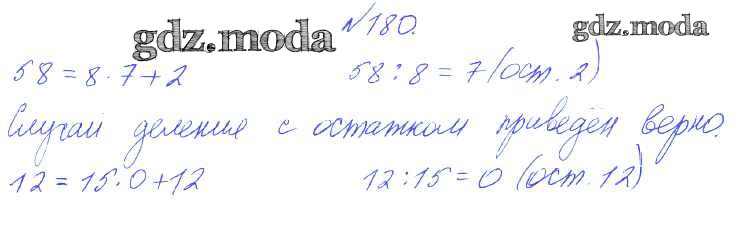 №180.
gdz.moda gdz.moda
58 = 8 · 7 + 2 58 : 8 = 7 (ост. 2)
Случай деления с остатком приведён верно.
12 = 15 · 0 + 12 12 : 15 = 0 (ост. 12)